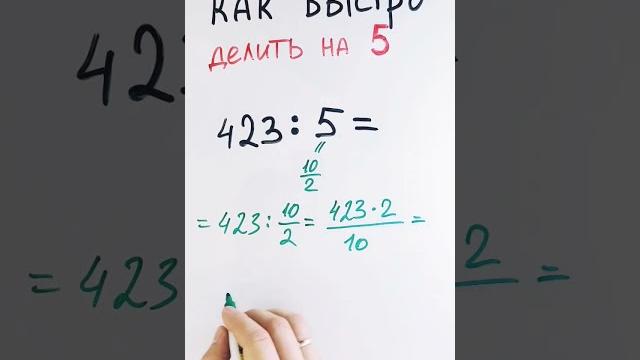 КАК БЫСТРО
ДЕЛИТЬ НА 5
423 : 5 =
"
10/2
= 423 : 10/2 = 423 · 2/10 =